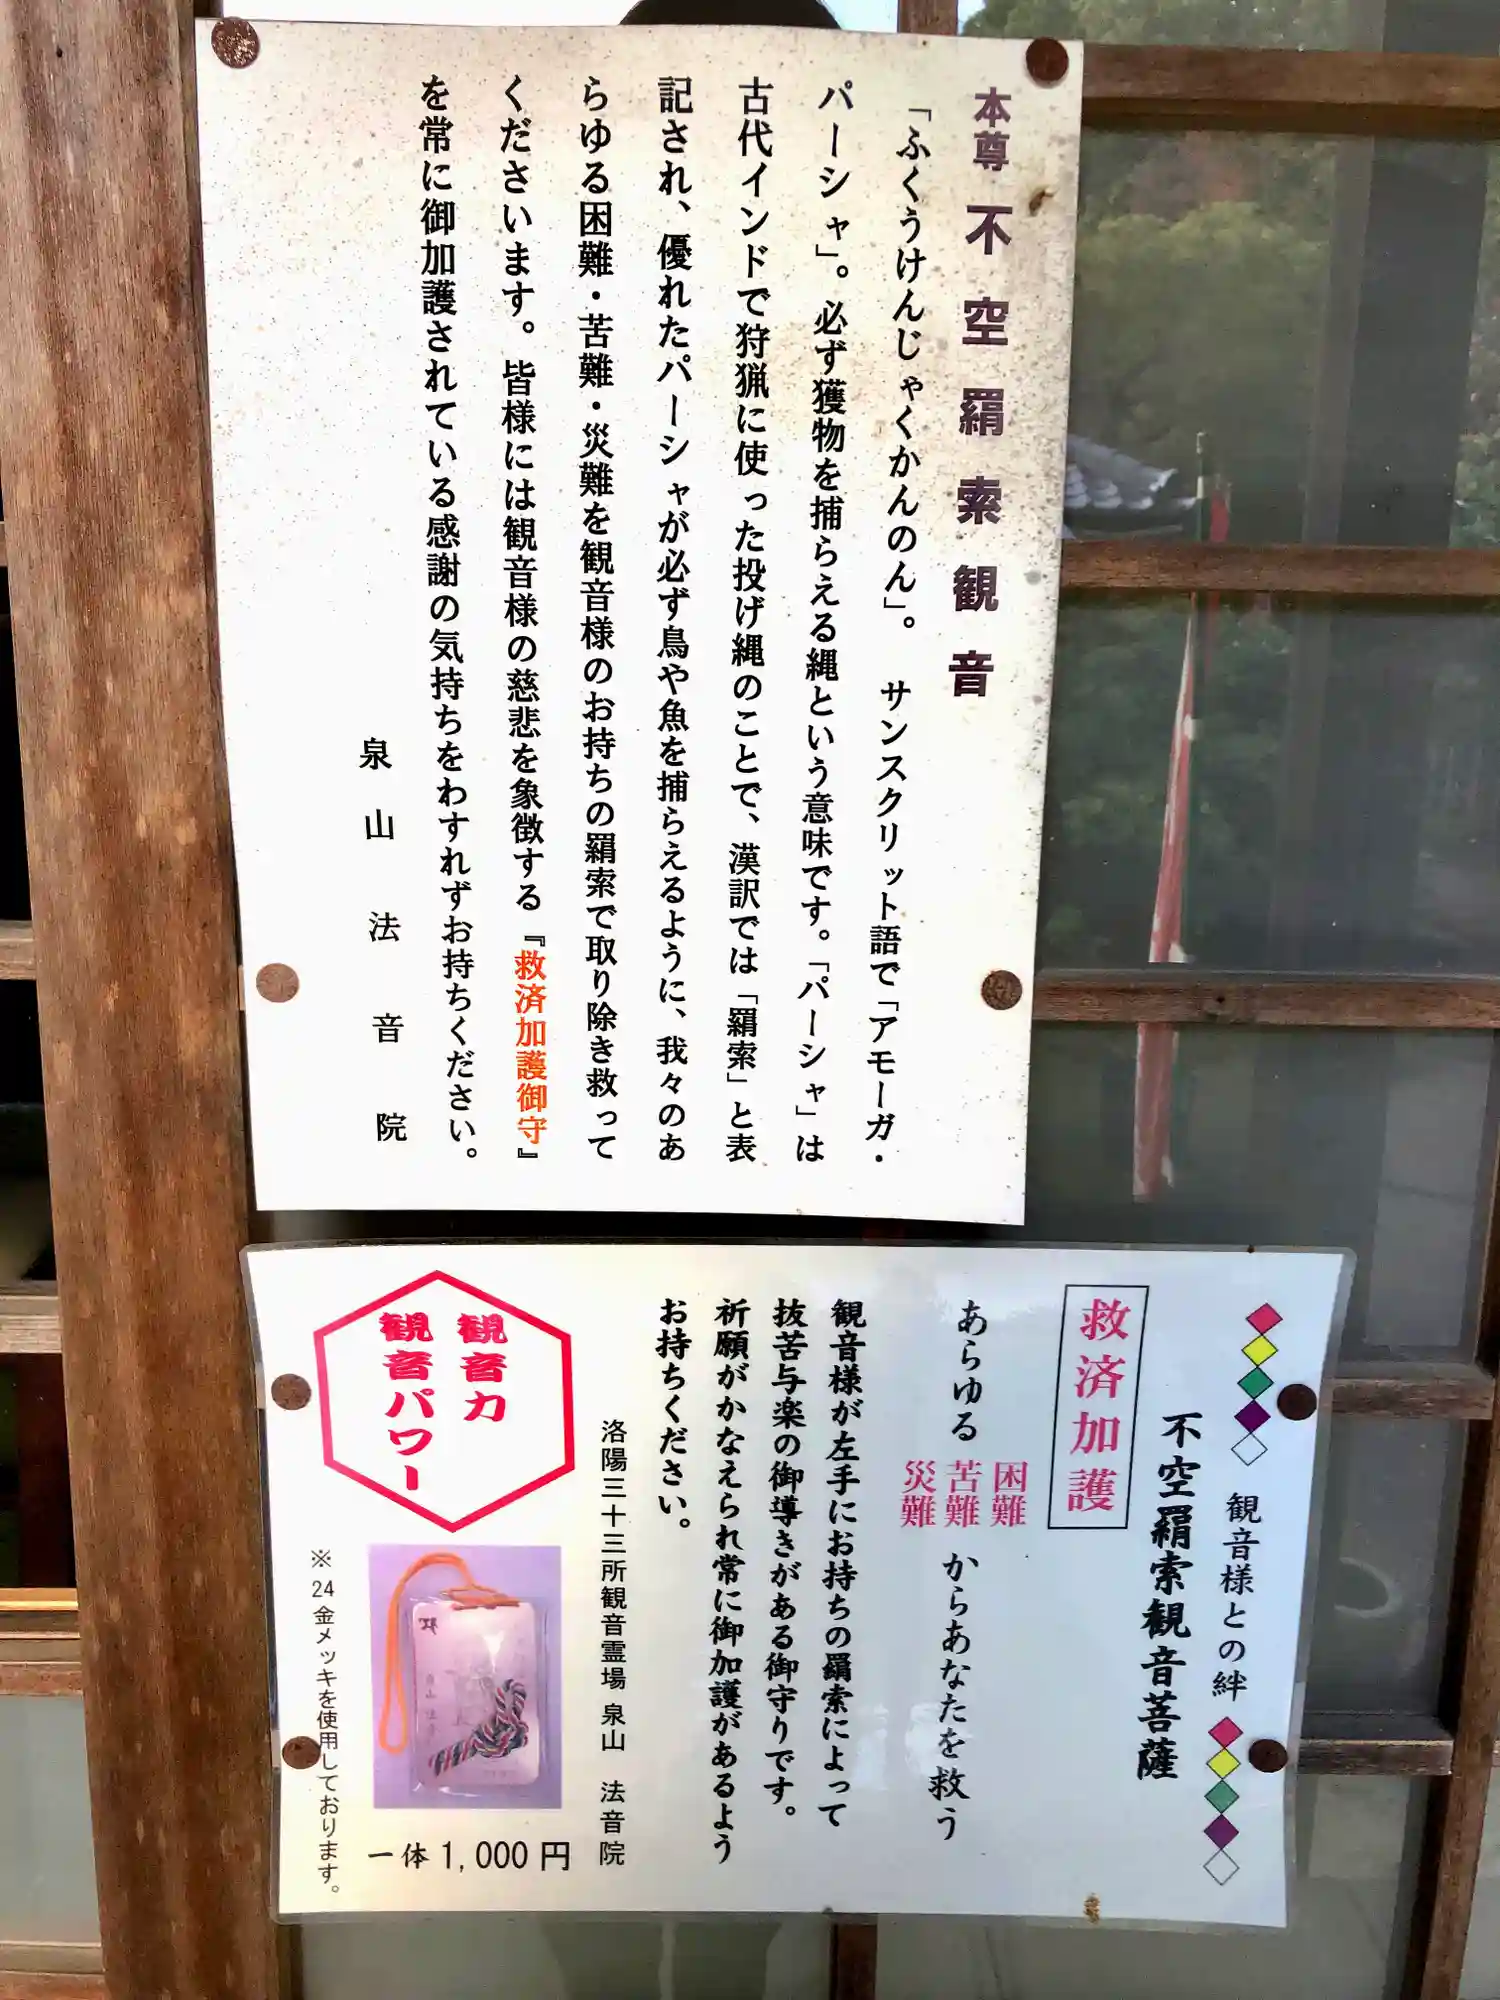 本尊 不空羂索観音
「ふくうけんじゃくかんのん」。 サンスクリット語で「アモーガ・
パーシャ」。必ず獲物を捕らえる縄という意味です。「パーシャ」は
古代インドで狩猟に使った投げ縄のことで、漢訳では「羂索」と表
記され、優れたパーシャが必ず鳥や魚を捕らえるように、我々のあ
らゆる困難・苦難・災難を観音様のお持ちの羂索で取り除き救って
くださいます。皆様には観音様の慈悲を象徴する『救済加護御守』
を常に御加護されている感謝の気持ちをわすれずお持ちください。
泉山法音院
観音様との絆
不空羂索観音菩薩
救済加護
あらゆる 困難 苦難 災難 からあなたを救う
観音様が左手にお持ちの羂索によって
抜苦与楽の御導きがある御守りです。
祈願がかなえられ常に御加護があるよう
お持ちください。
洛陽三十三所観音霊場 泉山 法音院
観音力
観音パワー
一体 1,000 円
※24金メッキを使用しております。